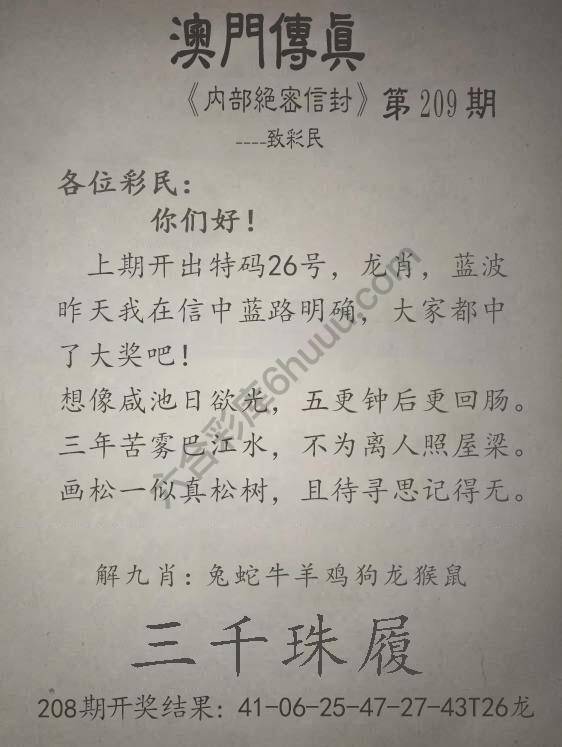 澳門傳眞
《内部絕密信封》第209期
----致彩民
各位彩民：
你们好！
上期开出特码26号，龙肖，蓝波
昨天我在信中蓝路明确，大家都中
了大奖吧！
想像咸池日欲光，五更钟后更回肠。
三年苦雾巴江水，不为离人照屋梁。
画松一似真松树，且待寻思记得无。
六合彩库6huuu.com
解九肖：兔蛇牛羊鸡狗龙猴鼠
三千珠履
208期开奖结果：41-06-25-47-27-43T26龙